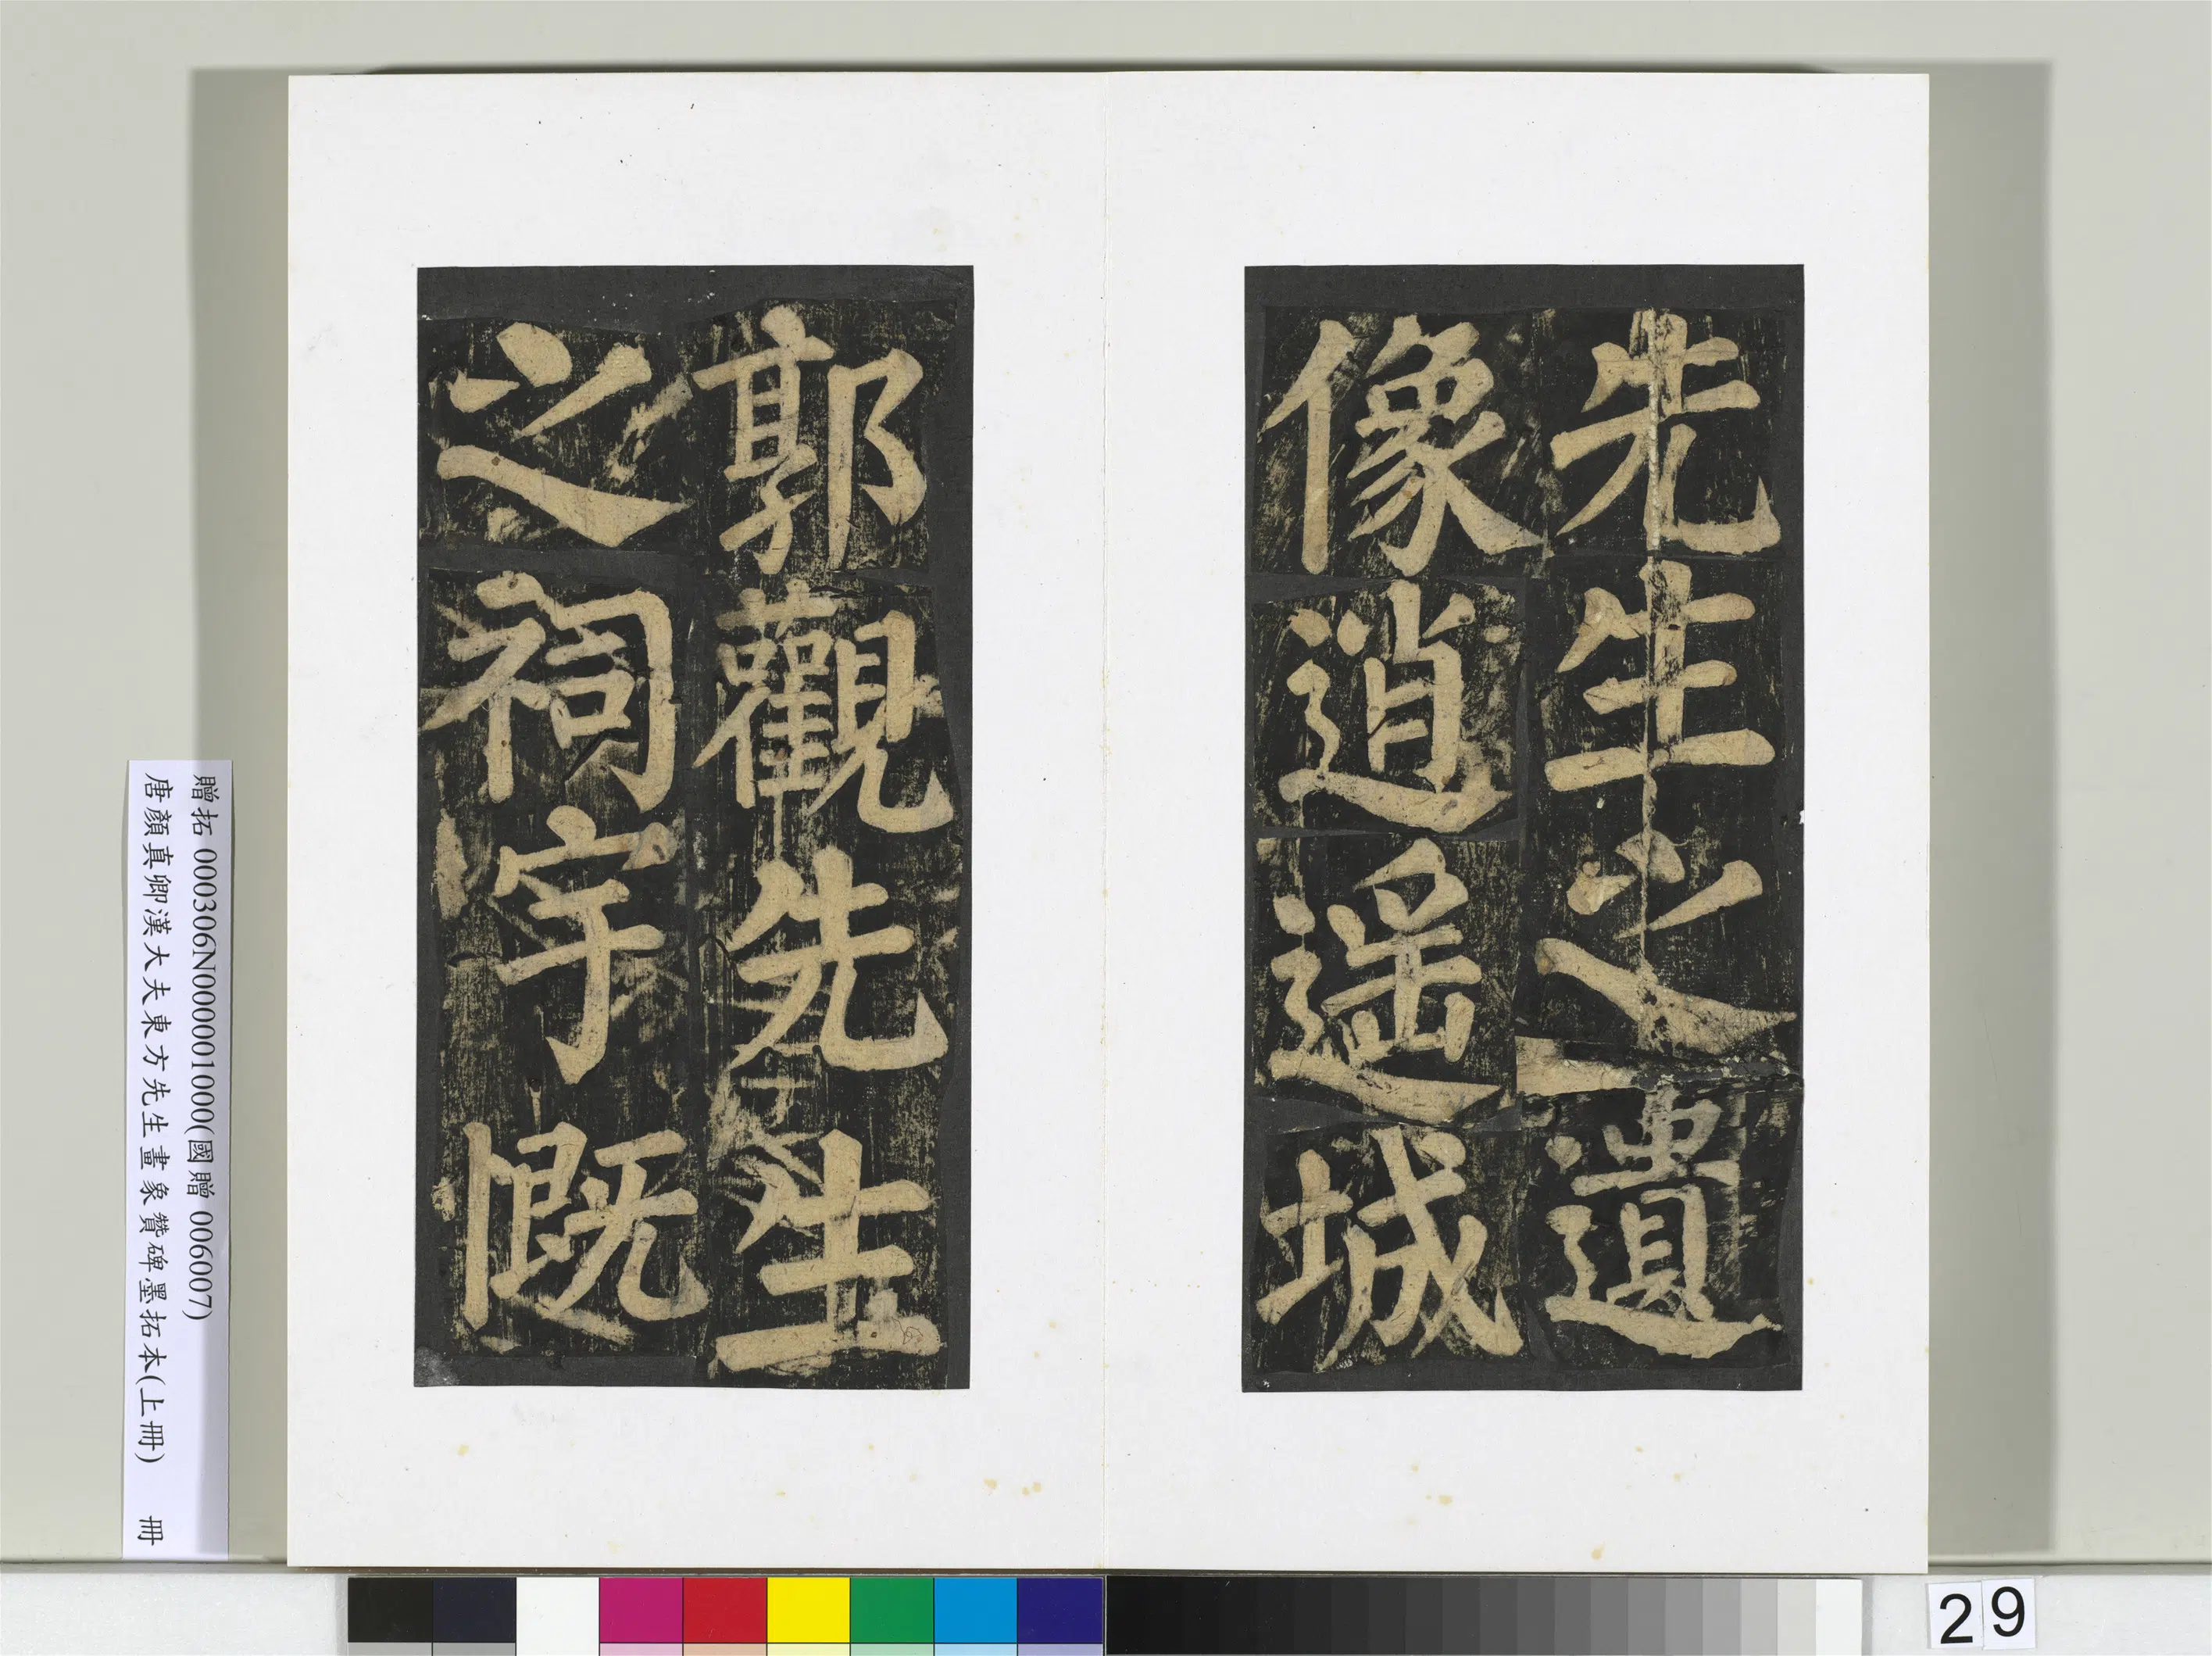 先生之遺
像逍遥城
郭觀先生
之祠宇慨
贈拓 000306N000001000(國贈 006007)
唐顏真卿漢大夫東方先生畫象贊碑墨拓本(上冊) 冊
29